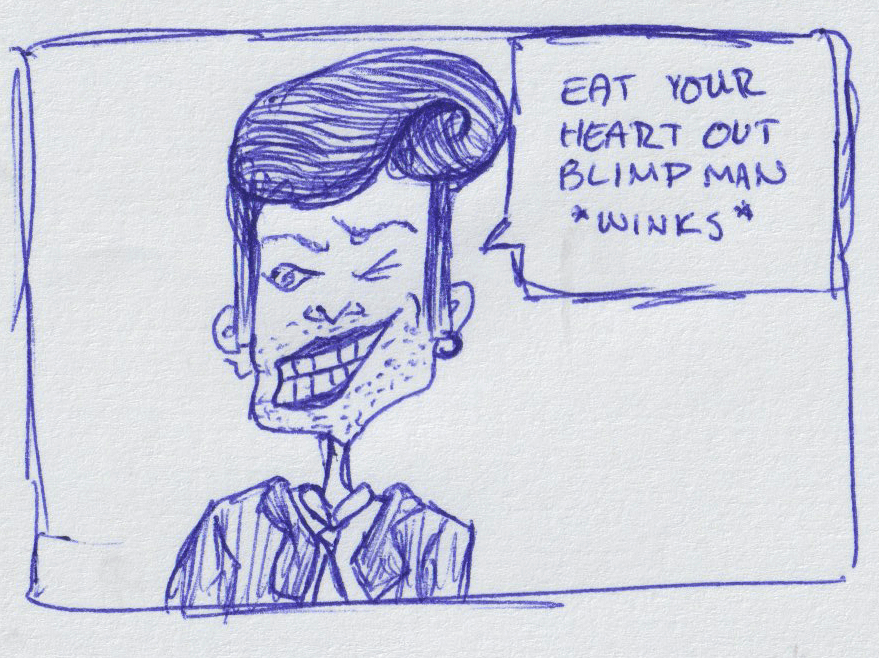 EAT YOUR
HEART OUT
BLIMP MAN
*WINKS*